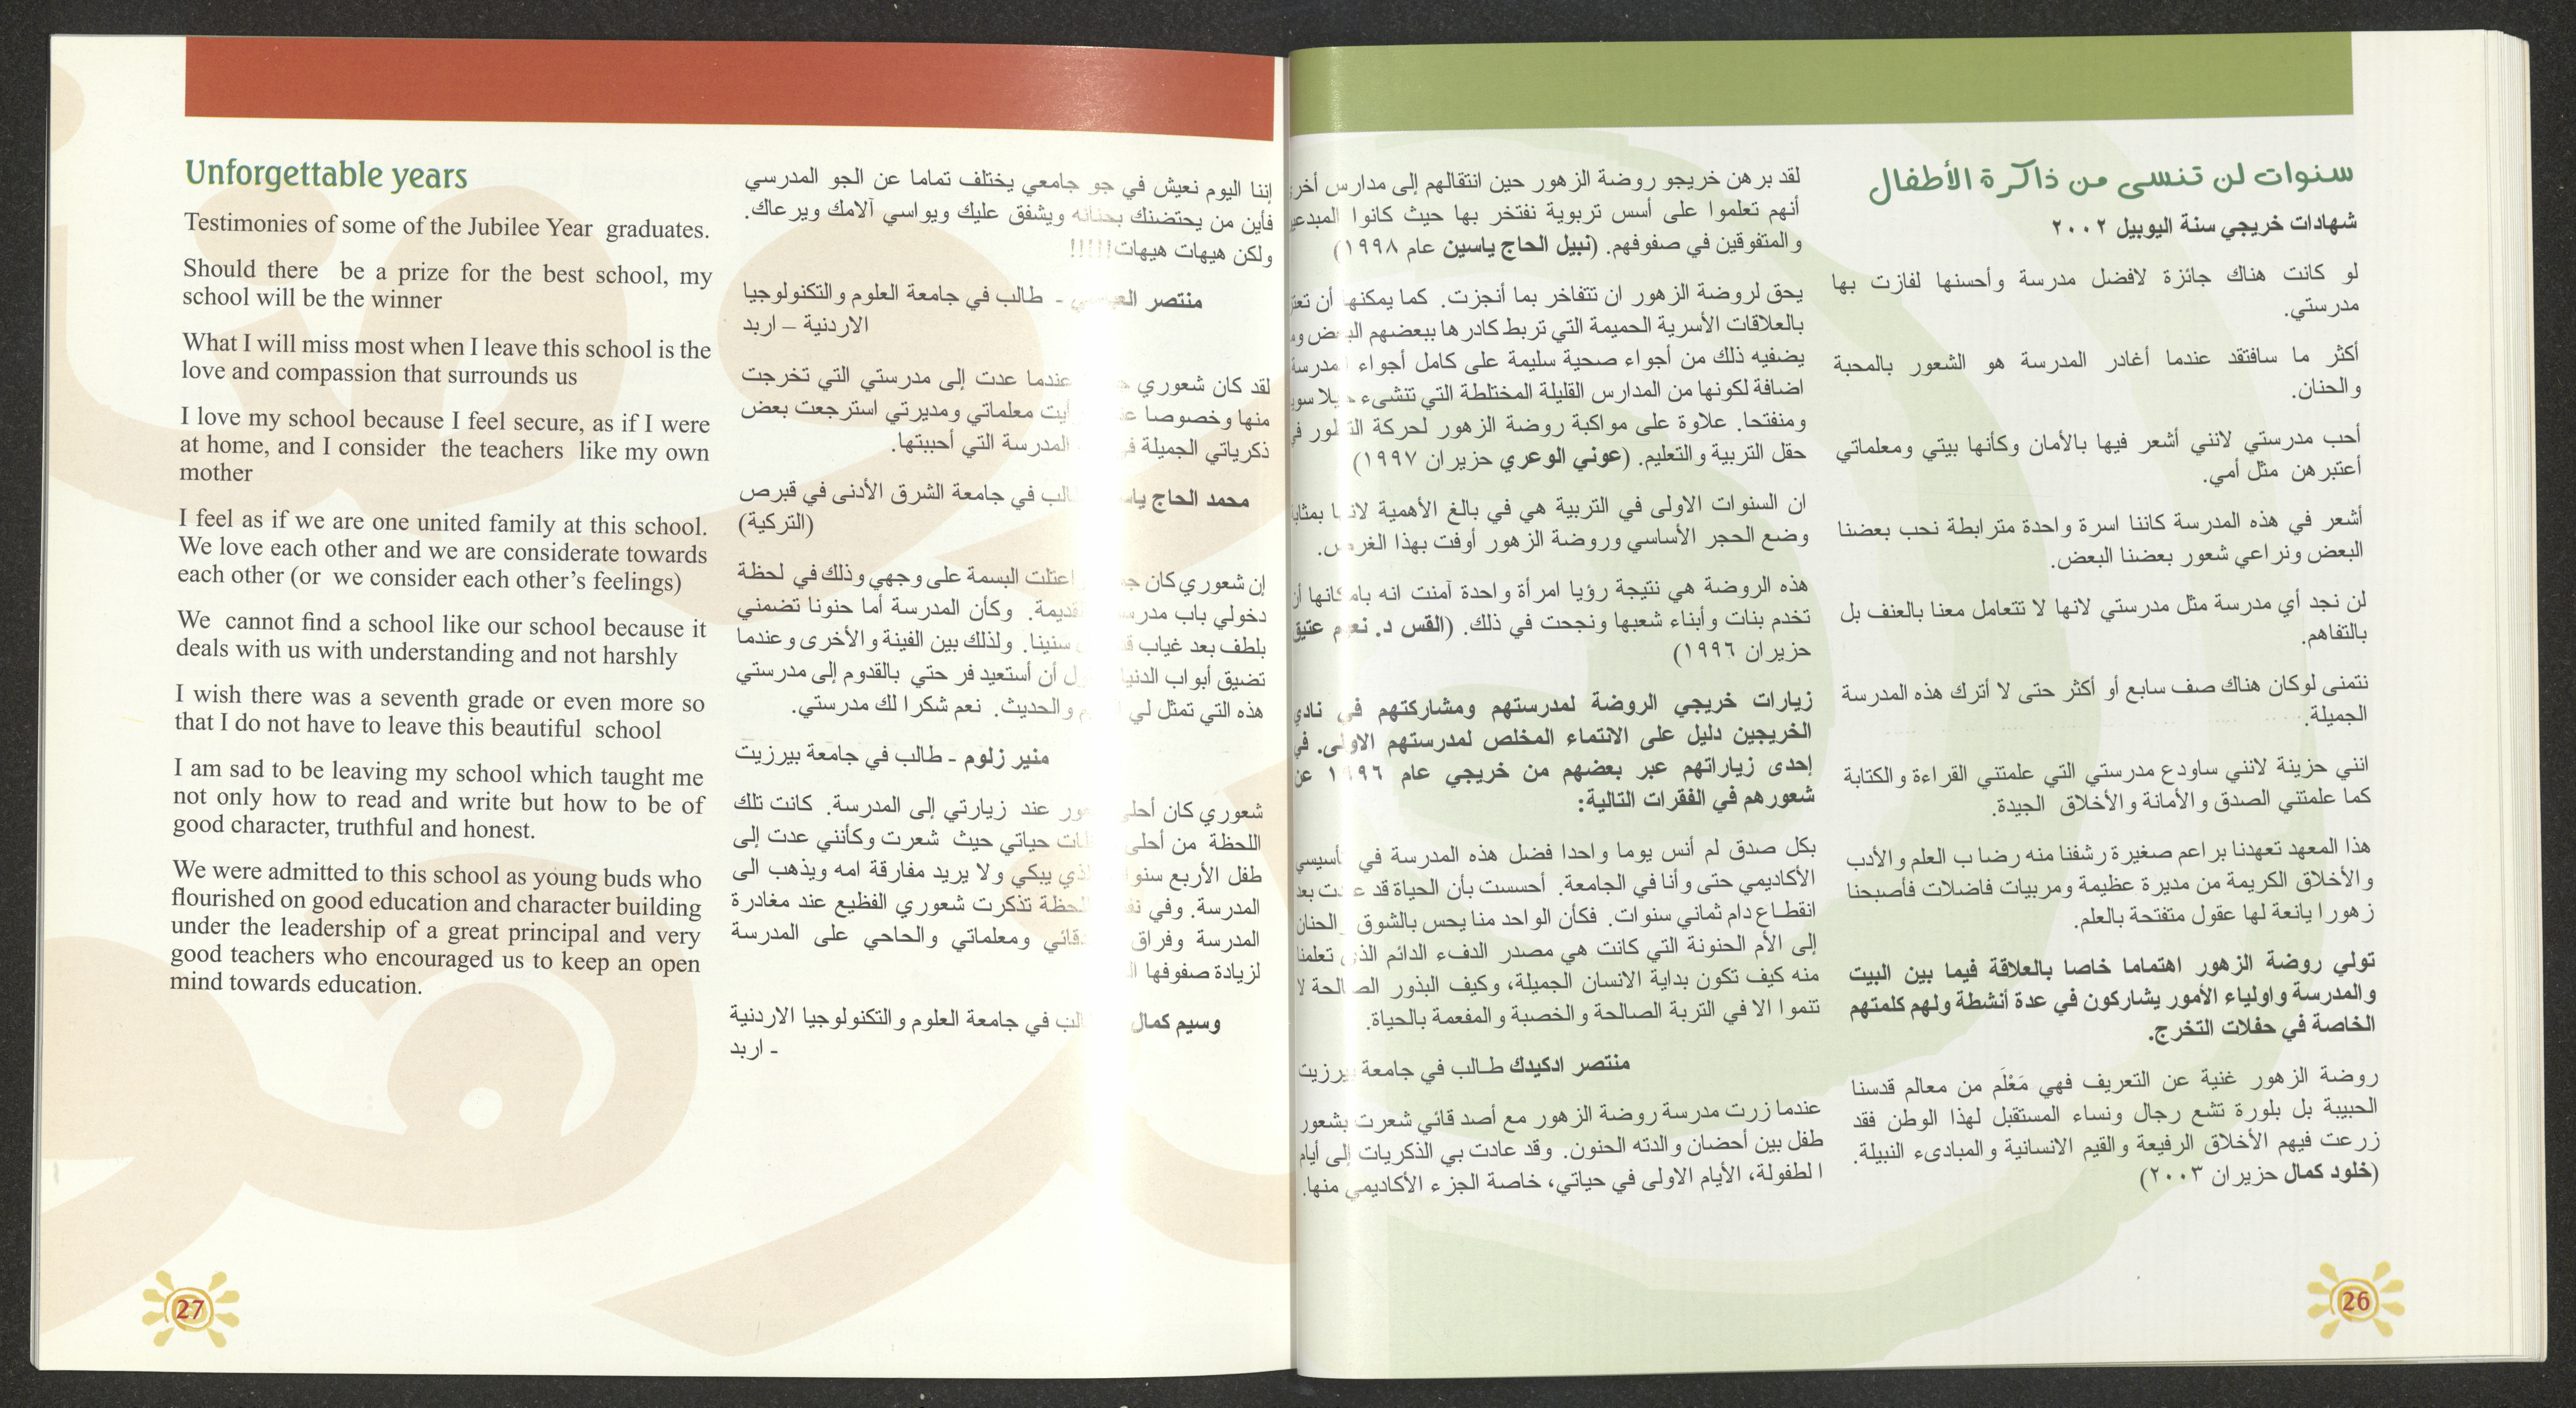 سنوات لن تنسى من ذاكرة الأطفال
شهادات خريجي سنة اليوبيل ٢٠٠٢
لو كانت هناك جائزة لافضل مدرسة وأحسنها لفازت بها
مدرستي.
أكثر ما سافتقد عندما أغادر المدرسة هو الشعور بالمحبة
والحنان.
أحب مدرستي لانني أشعر فيها بالأمان وكأنها بيتي ومعلماتي
أعتبرهن مثل أمي.
أشعر في هذه المدرسة كاننا اسرة واحدة مترابطة نحب بعضنا
البعض ونراعي شعور بعضنا البعض.
لن نجد أي مدرسة مثل مدرستي لانها لا تتعامل معنا بالعنف بل
بالتفاهم.
نتمنى لوكان هناك صف سابع أو أكثر حتى لا أترك هذه المدرسة
الجميلة.
انني حزينة لانني ساودع مدرستي التي علمتني القراءة والكتابة
كما علمتني الصدق والأمانة والأخلاق الجيدة.
هذا المعهد تعهدنا براعم صغيرة رشفنا منه رضاب العلم والأدب
والأخلاق الكريمة من مديرة عظيمة ومربيات فاضلات فأصبحنا
زهورا يانعة لها عقول متفتحة بالعلم.
تولي روضة الزهور اهتماما خاصا بالعلاقة فيما بين البيت
والمدرسة واولياء الأمور يشاركون في عدة أنشطة ولهم كلمتهم
الخاصة في حفلات التخرج.
روضة الزهور غنية عن التعريف فهي مَعْلَم من معالم قدسنا
الحبيبة بل بلورة تشع رجال ونساء المستقبل لهذا الوطن فقد
زرعت فيهم الأخلاق الرفيعة والقيم الانسانية والمبادىء النبيلة.
(خلود كمال حزيران ٢٠٠٣)
لقد برهن خريجو روضة الزهور حين انتقالهم إلى مدارس
أنهم تعلموا على أسس تربوية نفتخر بها حيث كانوا
والمتفوقين في صفوفهم. (نبيل الحاج ياسين عام ١٩٩٨)
يحق لروضة الزهور ان تتفاخر بما أنجزت. كما يمكنها أن
بالعلاقات الأسرية الحميمة التي تربط كادرها ببعضهم البعض
يضفيه ذلك من أجواء صحية سليمة على كامل أجواء المدرسة
اضافة لكونها من المدارس القليلة المختلطة التي تنشىء جيلا
ومنفتحا. علاوة على مواكبة روضة الزهور لحركة التطور في
حقل التربية والتعليم. (عوني الوعري حزيران ١٩٩٧)
ان السنوات الاولى في التربية هي في بالغ الأهمية لانها بمثابة
وضع الحجر الأساسي وروضة الزهور أوفت بهذا الغرض.
هذه الروضة هي نتيجة رؤيا امرأة واحدة آمنت انه بامكانها أن
تخدم بنات وأبناء شعبها ونجحت في ذلك. (القس د. نعيم عتيق
حزيران ١٩٩٦)
زيارات خريجي الروضة لمدرستهم ومشاركتهم في نادي
الخريجين دليل على الانتماء المخلص لمدرستهم الاولى. في
إحدى زياراتهم عبر بعضهم من خريجي عام ١٩٩٦ عن
شعورهم في الفقرات التالية:
بكل صدق لم أنس يوما واحدا فضل هذه المدرسة في تأسيسي
الأكاديمي حتى وأنا في الجامعة. أحسست بأن الحياة قد عادت بعد
انقطاع دام ثماني سنوات. فكأن الواحد منا يحس بالشوق والحنان
إلى الأم الحنونة التي كانت هي مصدر الدفء الدائم الذي تعلمنا
منه كيف تكون بداية الانسان الجميلة، وكيف البذور الصالحة لا
تنموا الا في التربة الصالحة والخصبة والمفعمة بالحياة.
منتصر ادكيدك طالب في جامعة بيرزيت
عندما زرت مدرسة روضة الزهور مع أصدقائي شعرت بشعور
طفل بين أحضان والدته الحنون. وقد عادت بي الذكريات إلى أيام
الطفولة، الأيام الاولى في حياتي، خاصة الجزء الأكاديمي منها.
26
إننا اليوم نعيش في جو جامعي يختلف تماما عن الجو المدرسي
فأين من يحتضنك بحنانه ويشفق عليك ويواسي آلامك ويرعاك.
ولكن هيهات هيهات!!!!!
منتصر - طالب في جامعة العلوم والتكنولوجيا
الاردنية – اربد
لقد كان شعوري عندما عدت إلى مدرستي التي تخرجت
منها وخصوصا معلماتي ومديرتي استرجعت بعض
ذكرياتي الجميلة المدرسة التي أحببتها.
محمد الحاج في جامعة الشرق الأدنى في قبرص
(التركية)
إن شعوري كان اعتلت البسمة على وجهي وذلك في لحظة
دخولي باب وكأن المدرسة أما حنونا تضمني
بلطف بعد غياب سنينا. ولذلك بين الفينة والأخرى وعندما
تضيق أبواب الدنيا أن أستعيد فرحتي بالقدوم إلى مدرستي
هذه التي تمثل لي والحديث. نعم شكرا لك مدرستي.
منير زلوم - طالب في جامعة بيرزيت
شعوري كان عند زيارتي إلى المدرسة. كانت تلك
اللحظة من أحلى حياتي حيث شعرت وكأنني عدت إلى
طفل الأربع يبكي ولا يريد مفارقة امه ويذهب الى
المدرسة. وفي تذكرت شعوري الفظيع عند مغادرة
المدرسة وفراق ومعلماتي والحاحي على المدرسة
لزيادة صفوفها
وسيم كمال في جامعة العلوم والتكنولوجيا الاردنية
- اربد
Unforgettable years
Testimonies of some of the Jubilee Year graduates.
Should there be a prize for the best school, my
school will be the winner
What I will miss most when I leave this school is the
love and compassion that surrounds us
I love my school because I feel secure, as if I were
at home, and I consider the teachers like my own
mother
I feel as if we are one united family at this school.
We love each other and we are considerate towards
each other (or we consider each other’s feelings)
We cannot find a school like our school because it
deals with us with understanding and not harshly
I wish there was a seventh grade or even more so
that I do not have to leave this beautiful school
I am sad to be leaving my school which taught me
not only how to read and write but how to be of
good character, truthful and honest.
We were admitted to this school as young buds who
flourished on good education and character building
under the leadership of a great principal and very
good teachers who encouraged us to keep an open
mind towards education.
27